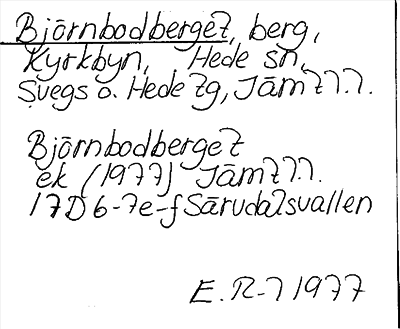 Björnbodberget, berg,
Kyrkbyn, Hede sn,
Svegs o. Hede tg, Jämtl.
Björnbodberget
ek (1977) Jämtl.
17D 6-7e-f Särvdalsvallen
E.R-l 1977